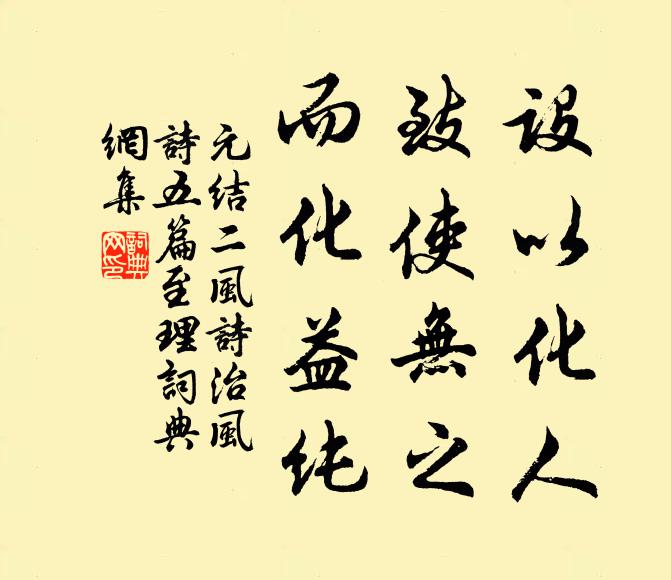 設以化人
致使無之
而化益純
元結二風詩治風
詩五篇至理詞典
網集
詞典
网印